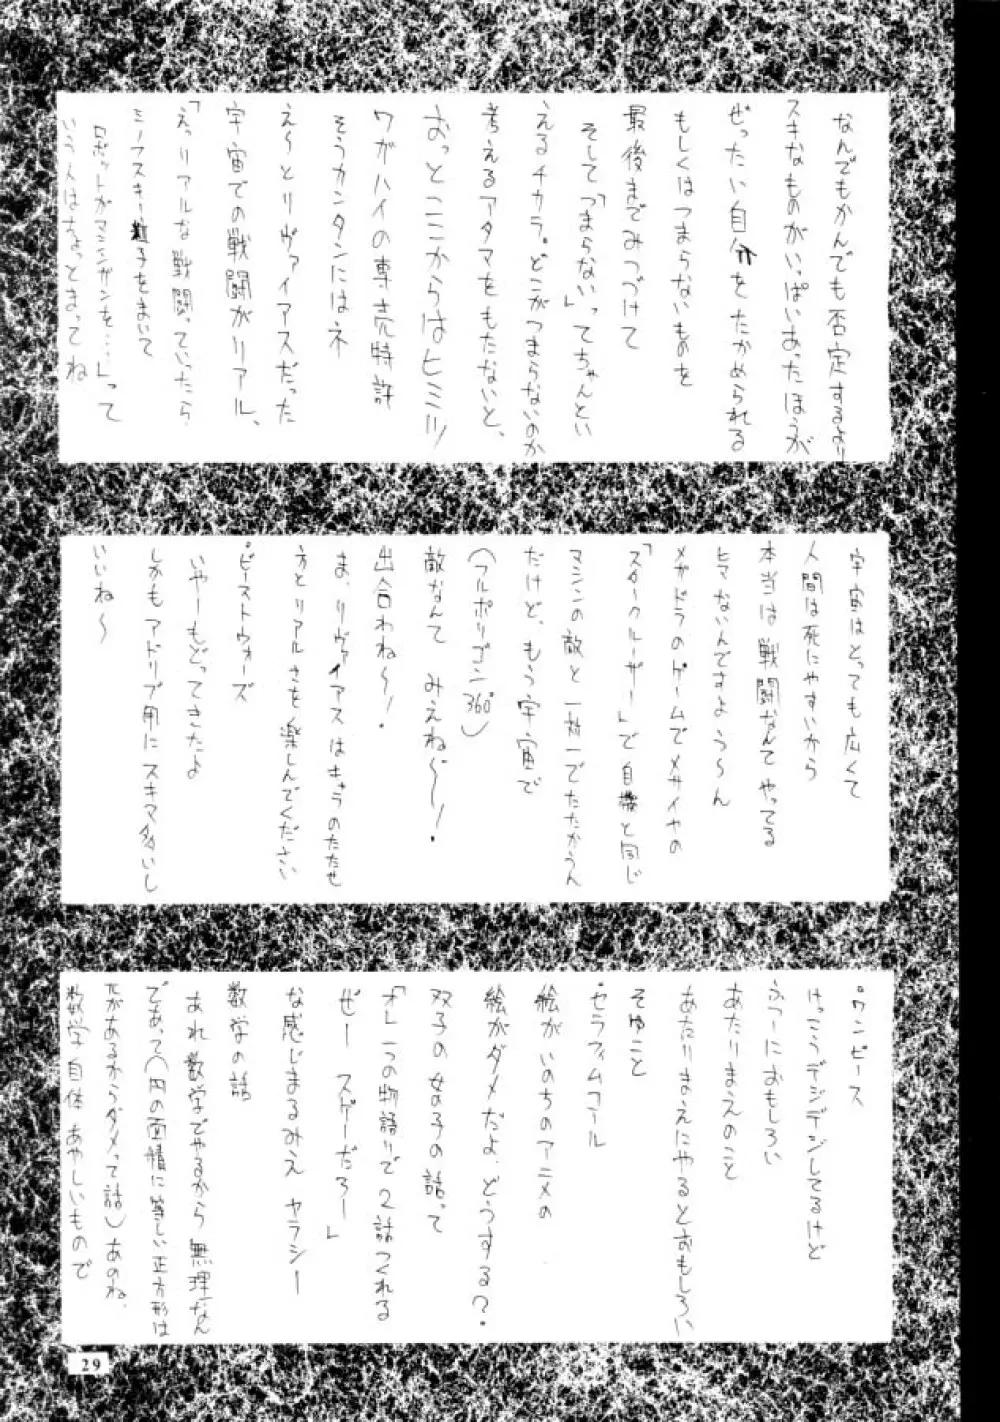 なんでもかんでも否定するより
スキなものがいっぱいあったほうが
ぜったい自分をたかめられる
もしくはつまらないものを
最後までみつづけて
そして「つまらないっ」てちゃんとい
えるチカラ。どこがつまらないのか
考えるアタマをもたないと、
おっとここからはヒミツ!
ワガハイの専売特許
そうカンタンにはネ
え〜とリヴァイアスだった
宇宙での戦闘がリアル、
「えっリアルな戦闘っていたら
ミノフスキー粒子をまいて
ロボットがマシンガンを‥‥」って
いう人はちょっとまってね
宇宙はとっても広くて
人間は死にやすいから
本当は戦闘なんてやってる
ヒマないんですようんん
メガドラのゲームでメサイヤの
「スタークルーザー」で自機と同じ
マシンの敵と一対一でたたかうん
だけど、もう宇宙で
(フルポリゴン360°)
敵なんてみえね〜〜!
出合わね〜!
ま、リヴァイアスはキャラのたたせ
方とリアルさを楽しんでください
・ビーストウォーズ
いやーもどってきたよ
しかもアドリブ用にスキマ多いし
いいね〜
・ワンピース
けっこうデジデジしてるけど
ふつーにおもしろい
あたりまえのこと
あたりまえにやるとおもしろい
そゆこと
・セラフィムコール
絵がいのちのアニメの
絵がダメだよ、どうする?
双子の女の子の話って
「オレ一つの物語りで2話つくれる
ぜー スゲーだろー」
な感じまるみえヤラシー
数学の話
あれ数学でやるから無理なん
であって(円の面積に等しい正方形は
たがあるからダメって話)あのね、
数学自体あやしいもので
29